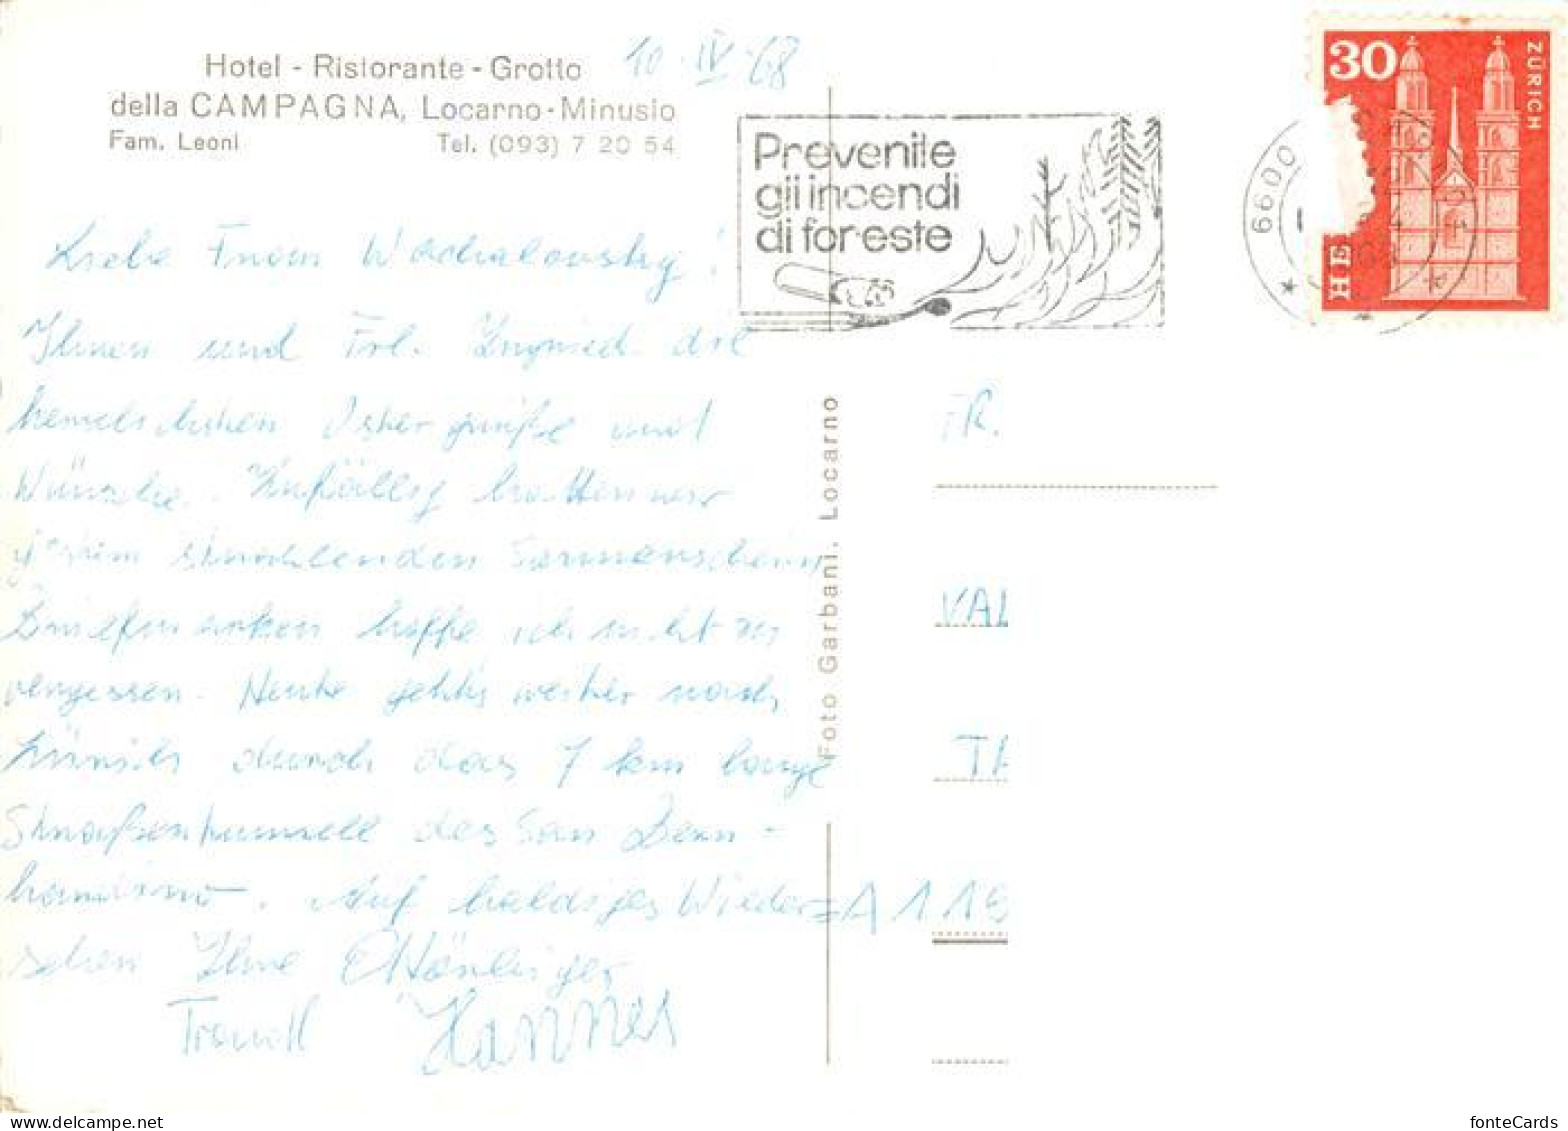 Hotel - Ristorante - Grotto
della CAMPAGNA, Locarno-Minusio
Fam. Leoni Tel. (093) 7 20 54
10. IV. 68
Prevenite
gli incendi
di foreste
30
ZÜRICH
HE
6600
Liebe Frau Wachalovsky!
Ihnen und Frl. Ingried die
herzlichsten Ostergrüße und
Wünsche. Zufällig hatten wir
strahlenden Sonnenschein
Briefmarken hoffe ich nicht zu
vergessen. Heute geht's weiter nach
Zürich durch das 7 km lange
Straßentunnell des San Bern-
hardino. Auf baldiges Wieder=
sehen Ihre
Traudl Hannes
FR.
VAL
A 11
Foto Garbani, Locarno
fonteCards